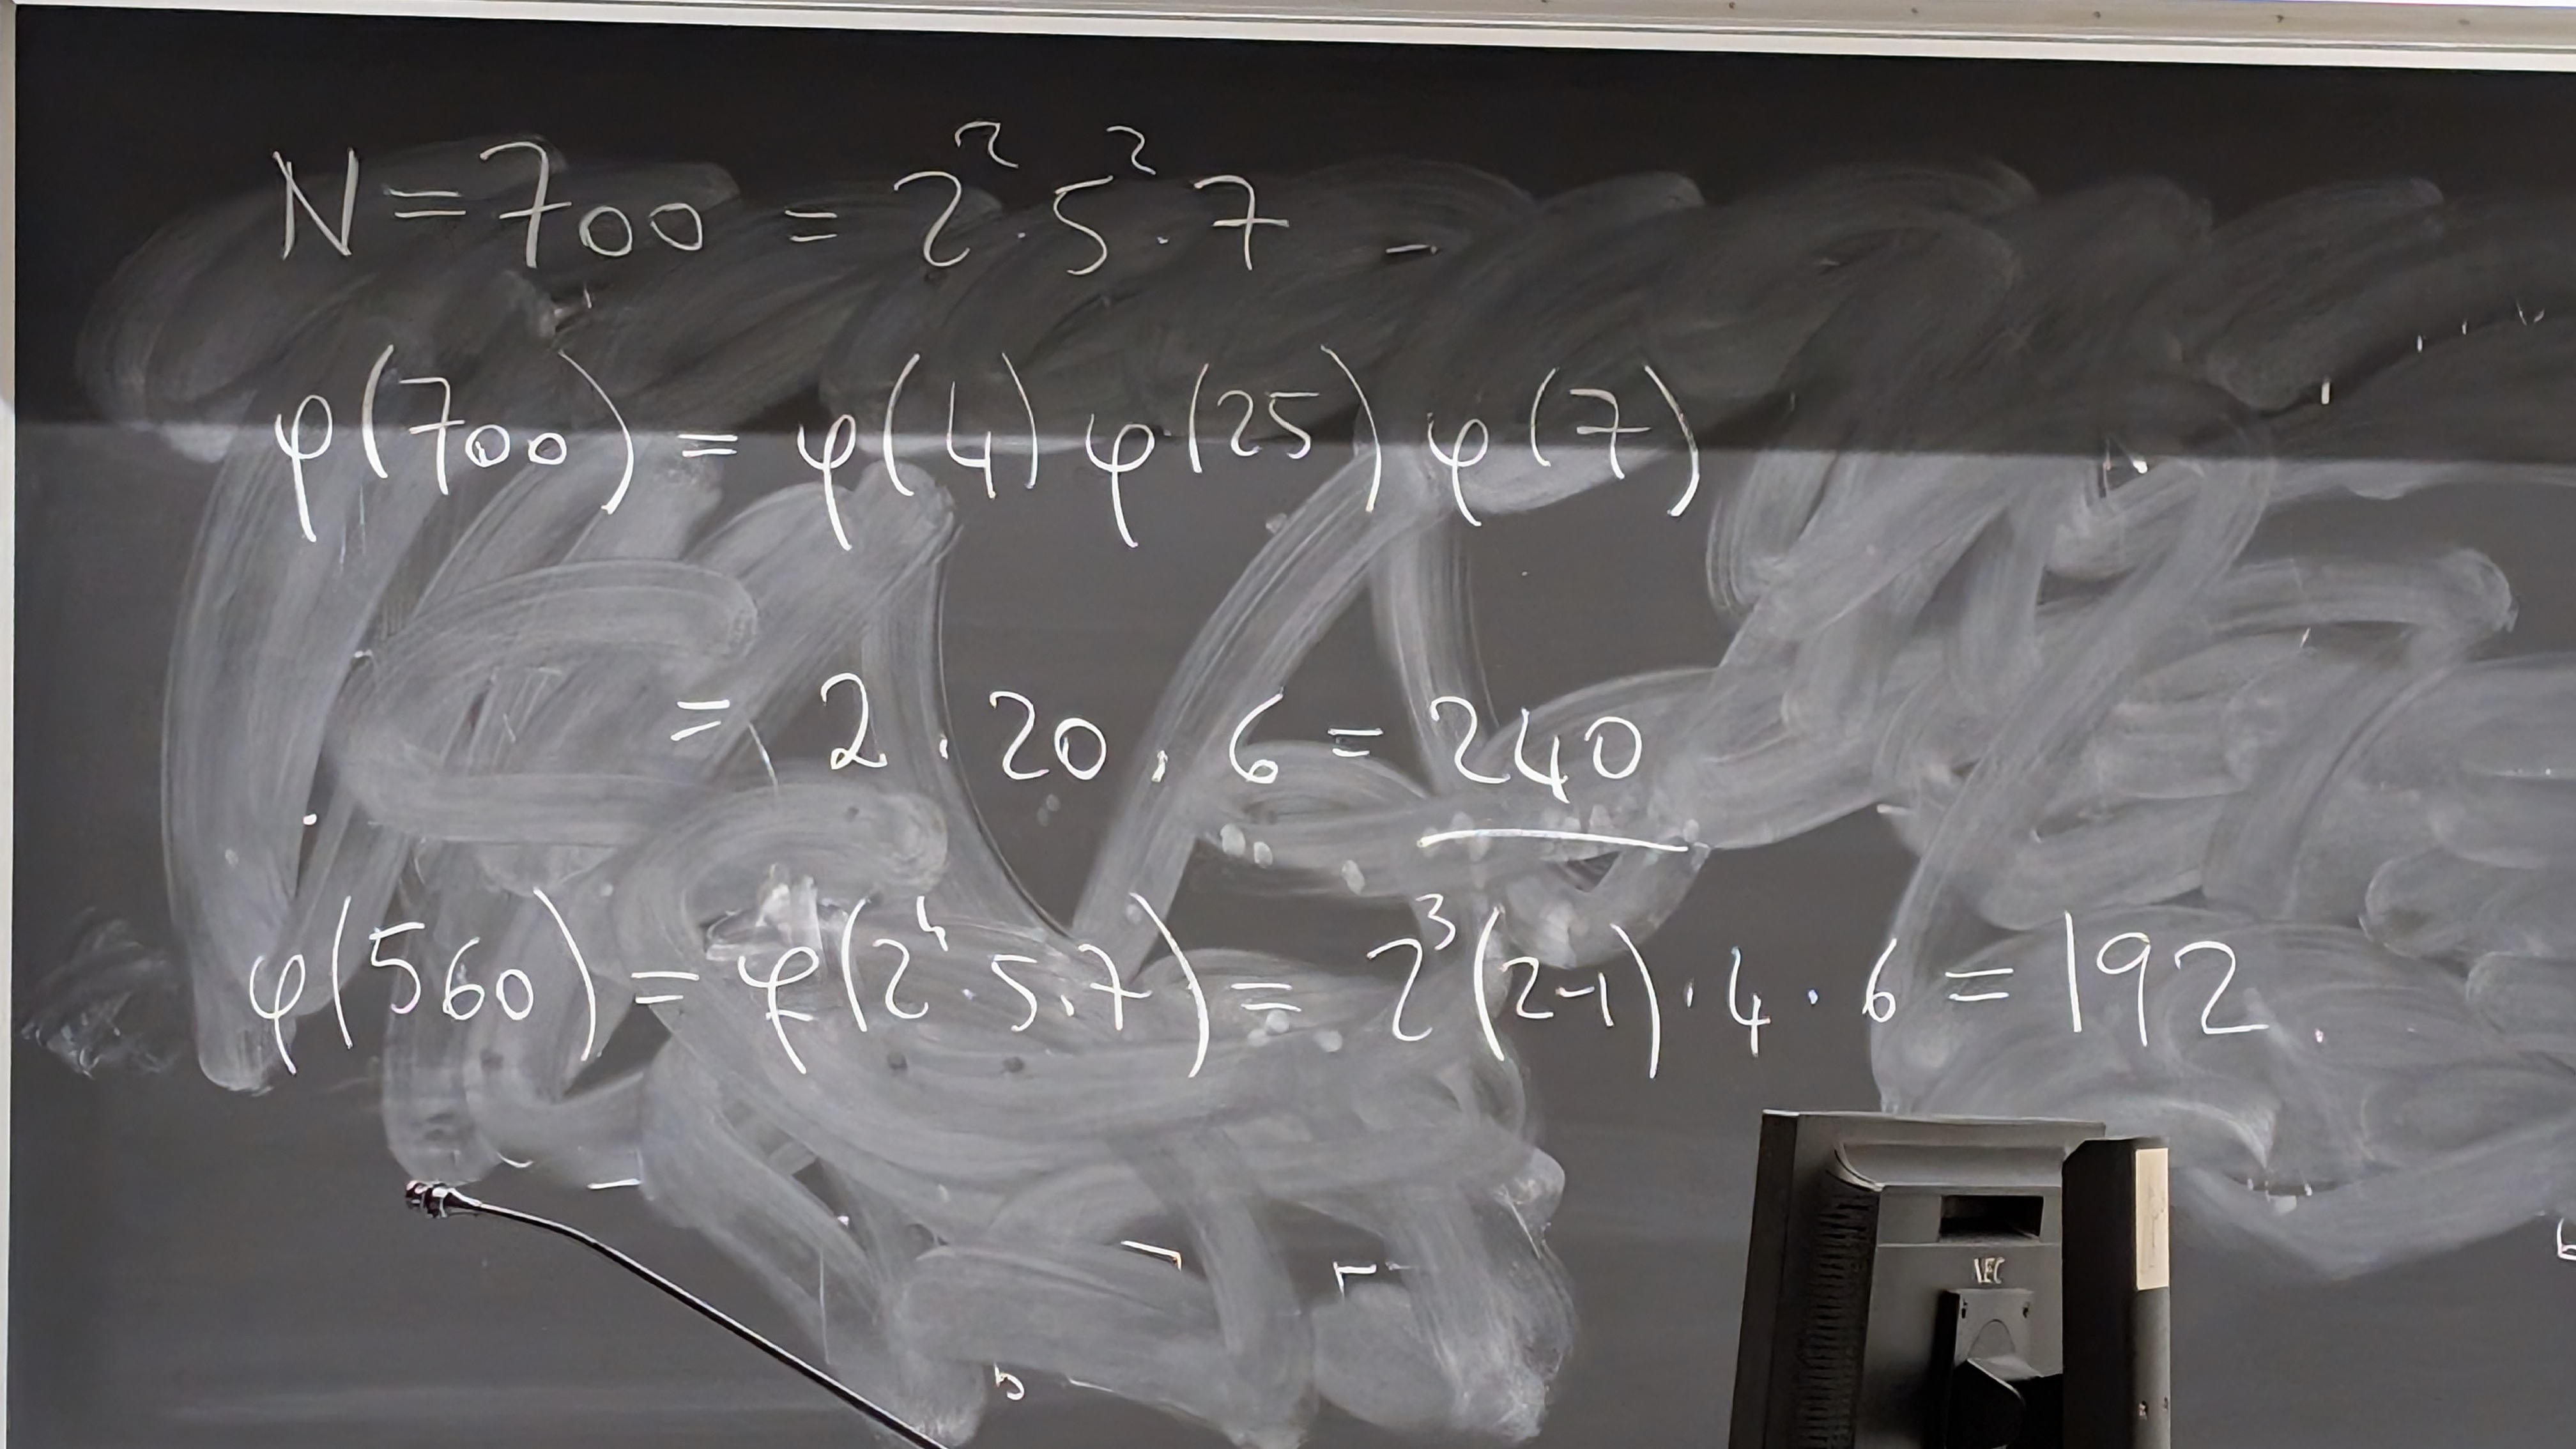 N = 700 = 2² · 5² · 7
φ(700) = φ(4) φ(25) φ(7)
= 2 · 20 · 6 = 240
φ(560) = φ(2⁴ · 5 · 7) = 2³(2-1) · 4 · 6 = 192.
NEC